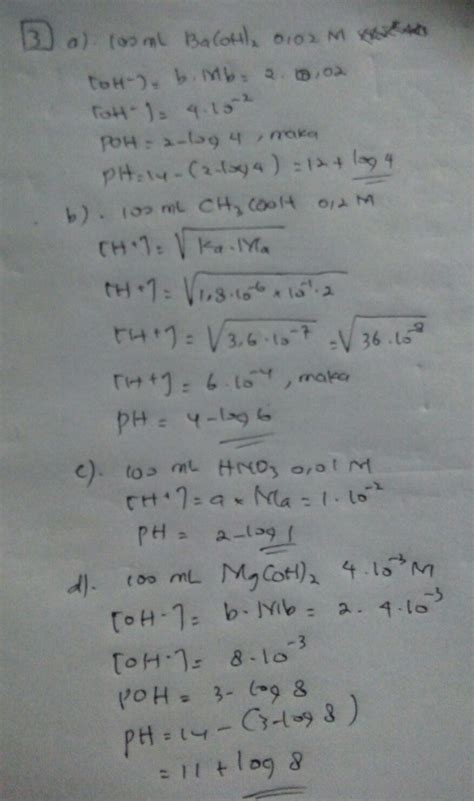 3 a). 100 mL Ba(OH)₂ 0,02 M
[OH⁻] = b . Mb = 2 . 0,02
[OH⁻] = 4.10⁻²
POH = 2 - log 4 , maka
PH = 14 - (2 - log 4) = 12 + log 4
b). 100 mL CH₃COOH 0,2 M
[H⁺] = √Ka . Ma
[H⁺] = √1,8.10⁻⁶ × 10⁻¹.2
[H⁺] = √3,6.10⁻⁷ = √36.10⁻⁸
[H⁺] = 6.10⁻⁴ , maka
PH = 4 - log 6
c). 100 mL HNO₃ 0,01 M
[H⁺] = a × Ma = 1.10⁻²
PH = 2 - log 1
d). 100 mL Mg(OH)₂ 4.10⁻³ M
[OH⁻] = b . Mb = 2. 4.10⁻³
[OH⁻] = 8.10⁻³
POH = 3 - log 8
PH = 14 - (3 - log 8)
= 11 + log 8